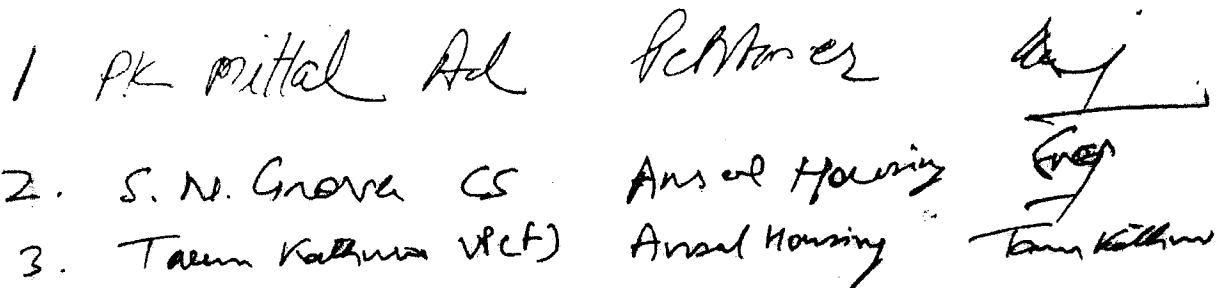 1 PK Mittal Ad Petitioner
2. S. N. Grover CS Ansal Housing
3. Tarun Kathuria VP(F) Ansal Housing Tarun Kathuria